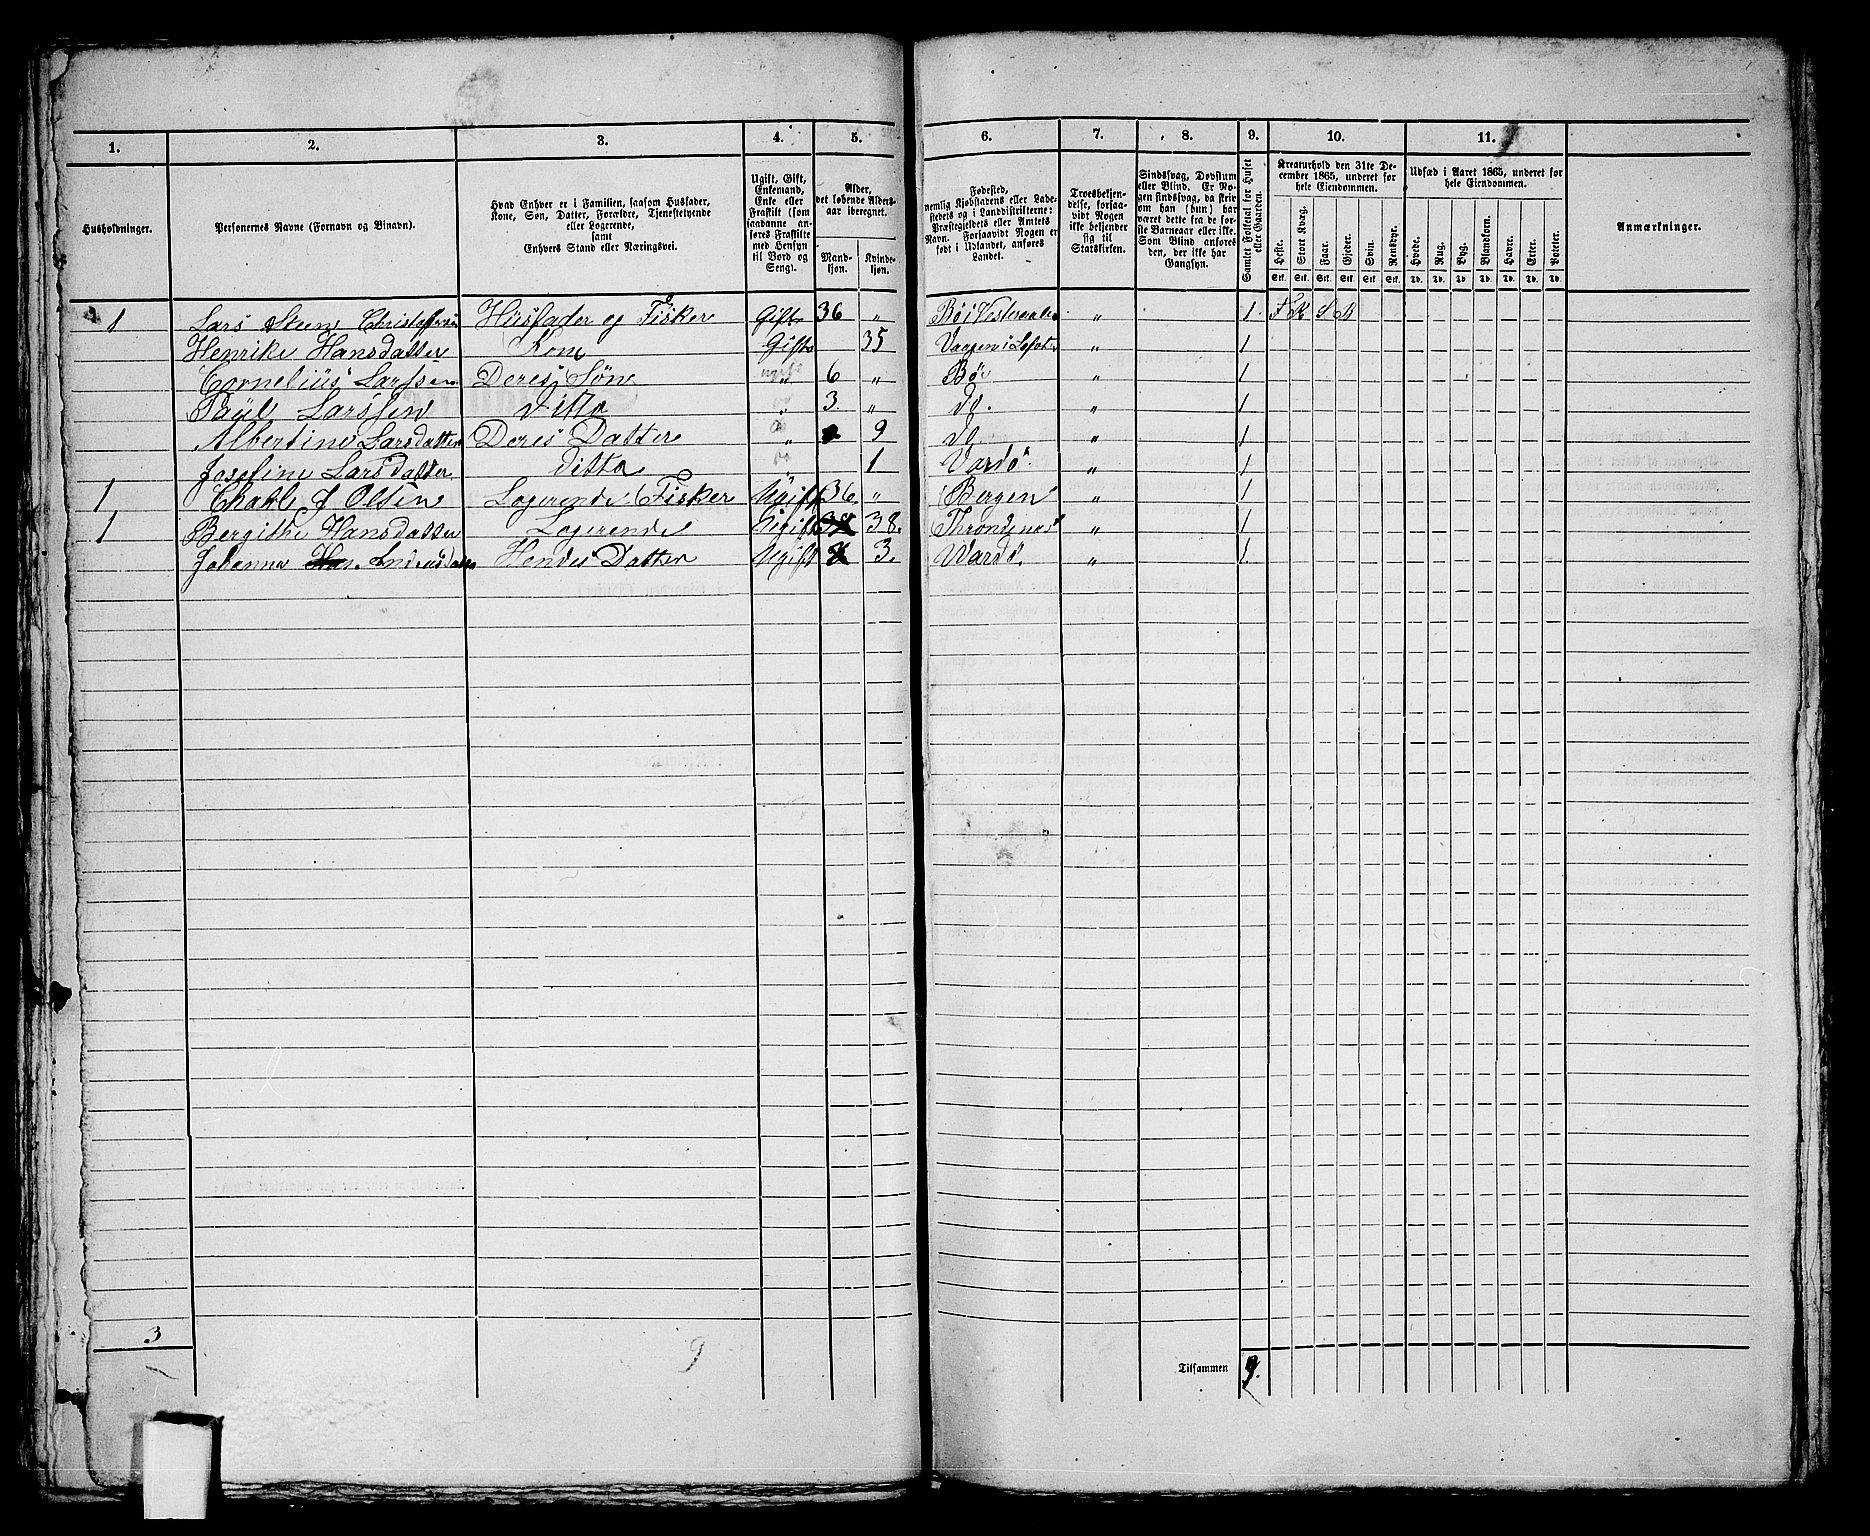 1. 2. 3. 4. 5. 6. 7. 8. 9. 10. 11.
Husholdninger.
Personernes Navne (Fornavn og Binavn).
Hvad Enhver er i Familien, saasom Husfader,
Kone, Søn, Datter, Forældre, Tjenestetyende
eller Logerende,
samt
Enhvers Stand eller Næringsvei.
Ugift, Gift,
Enkemand,
Enke eller
Fraskilt (som
saadanne an-
føres Fraskilte
med Hensyn
til Bord og
Seng).
Alder,
det løbende Alders-
aar iberegnet.
Mand-
kjøn.
Kvinde-
kjøn.
Fødested,
nemlig Kjøbstadens eller Lade-
stedets og i Landdistrikterne:
Præstegjeldets eller Amtets
Navn. Forsaavidt Nogen er
født i Udlandet, anføres
Landet.
Troesbekjen-
delse, forsaa-
vidt Nogen
ikke bekjender
sig til
Statskirken.
Sindssvag, Døvstum
eller Blind. Er No-
gen sindssvag, da skriv
om han (hun) har
været dette fra de før-
ste Barneaar eller ikke.
Som Blind anføres
den, der ikke har
Gangsyn.
Samlet Folketal for Huset
eller Gaarden.
Kreaturhold den 31te De-
cember 1865, underet for
hele Eiendommen.
Heste. Stort Kvæg. Faar. Gjeder. Svin. Rensdyr.
Stk. Stk. Stk. Stk. Stk. Stk.
Udsæd i Aaret 1865, underet for
hele Eiendommen.
Hvede. Rug. Byg. Blandkorn. Havre. Erter. Poteter.
Td. Td. Td. Td. Td. Td. Td.
Anmærkninger.
1 Lars Steen Husfader og Fisker Gift 36 „ Bø i Vesteraalen „ 1.
Henrike Hansdatter Kone Gift 35 Vaagen i Lofot. „ 1.
Cornelius Larssen Deres Søn ugift „ 6 „ Bø „ 1.
Paul Larssen Ditto „ 3. „ do. „ 1.
Albertine Larsdatter Deres Datter „ 9 do „ 1.
Josefine Larsdatter ditto „ 1 Vardø. „ 1.
1 Olsen Logerende Fisker Ugift 36 „ Bergen „ 1
1 Bergithe Hansdatter Logerende Ugift 38. Throndenæs „ 1
Johanna Hendes Datter Ugift 3. Wardø. „ 1.
3 9 Tilsammen 9.